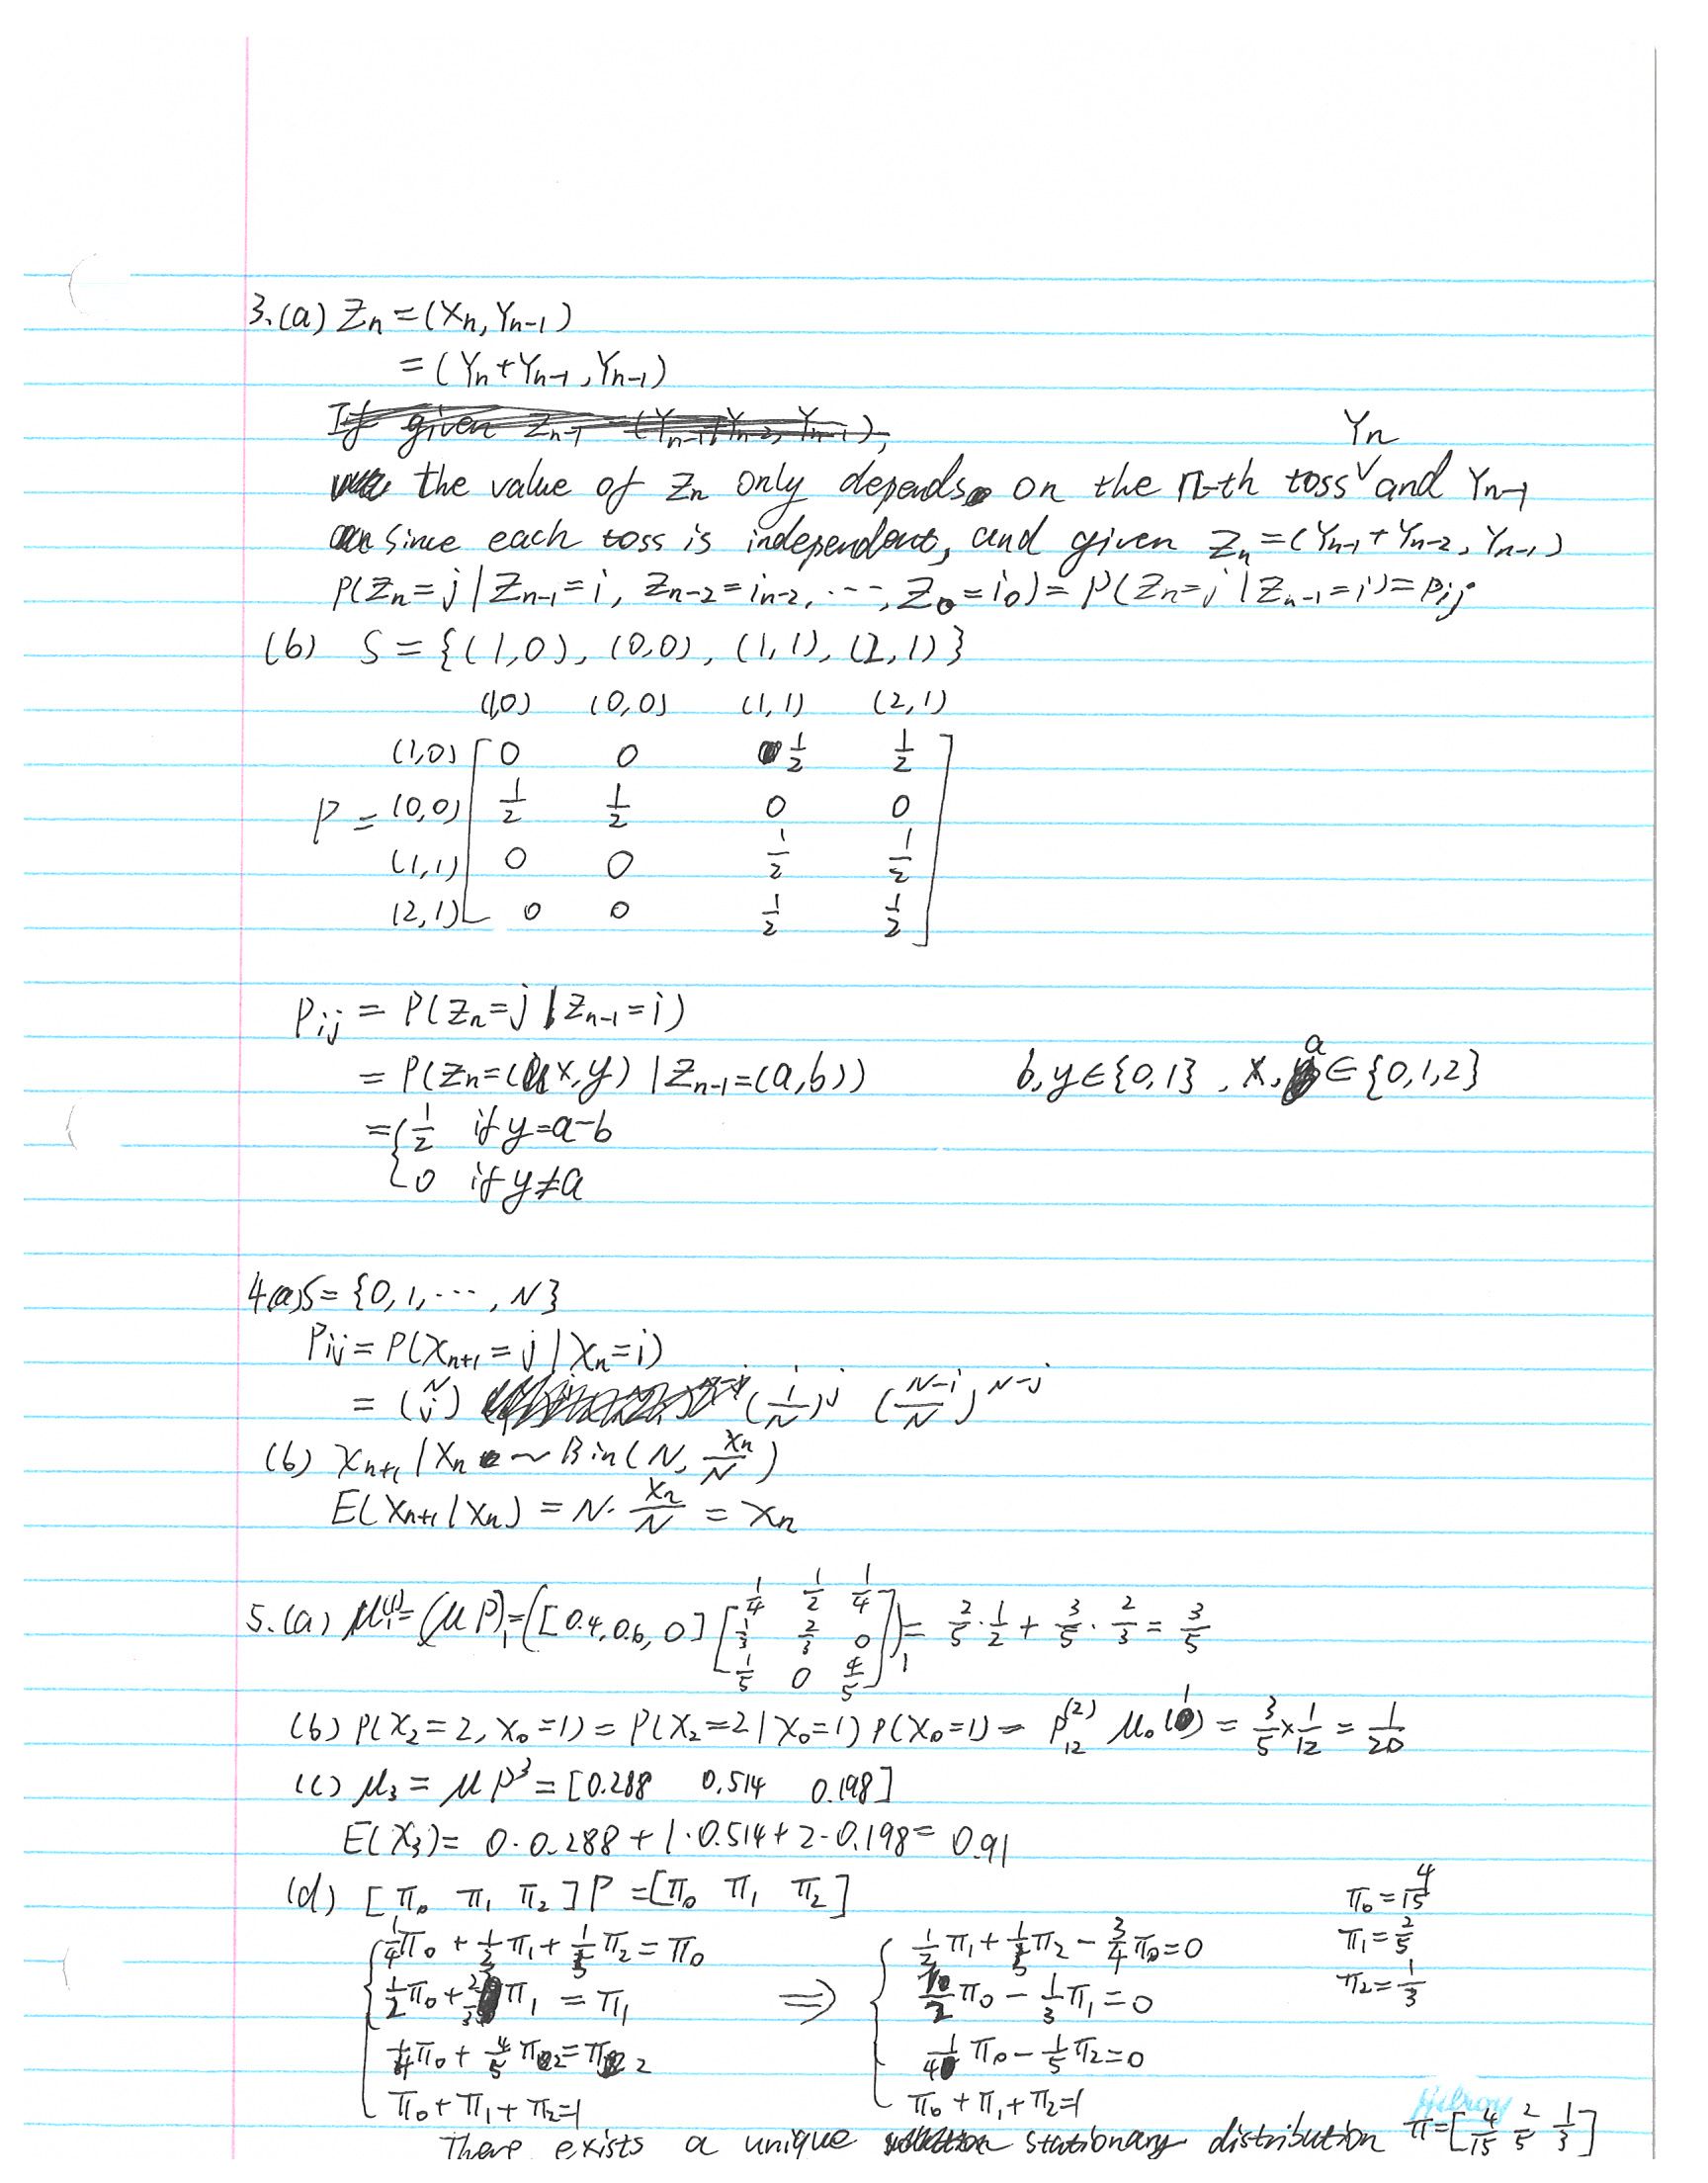 3.(a) Zn = (Xn, Yn-1)
= (Yn + Yn-1, Yn-1)
If given Zn-1 = (Yn-1+Yn-2, Yn-1),
Yn
the value of Zn only depends on the n-th toss ∨ and Yn-1
since each toss is independent, and given Zn = (Yn-1 + Yn-2, Yn-1)
P(Zn = j | Zn-1 = i, Zn-2 = in-2, ..., Z0 = i0) = P(Zn = j | Zn-1 = i) = Pij
(b) S = {(1,0), (0,0), (1,1), (2,1)}
(1,0) (0,0) (1,1) (2,1)
(1,0) [ 0 0 1/2 1/2 ]
P = (0,0) 1/2 1/2 0 0
(1,1) 0 0 1/2 1/2
(2,1) 0 0 1/2 1/2
Pij = P(Zn = j | Zn-1 = i)
= P(Zn = (x, y) | Zn-1 = (a, b)) b, y ∈ {0,1}, x, a ∈ {0,1,2}
= { 1/2 if y = a-b
0 if y ≠ a
4(a) S = {0, 1, ..., N}
Pij = P(Xn+1 = j | Xn = i)
= (N j) (i/N)^j ((N-i)/N)^N-j
(b) Xn+1 | Xn ~ Bin(N, Xn/N)
E(Xn+1 | Xn) = N · Xn/N = Xn
5.(a) μ1^(1) = (μP)1 = ([0.4, 0.6, 0] [1/4 1/2 1/4; 1/3 2/3 0; 1/5 0 4/5])1 = 2/5 · 1/2 + 3/5 · 2/3 = 3/5
(b) P(X2 = 2, X0 = 1) = P(X2 = 2 | X0 = 1) P(X0 = 1) = P12^(2) μ0(1) = 3/5 × 1/12 = 1/20
(c) μ3 = μP^3 = [0.288 0.514 0.198]
E(X3) = 0 · 0.288 + 1 · 0.514 + 2 · 0.198 = 0.91
(d) [π0 π1 π2] P = [π0 π1 π2] π0 = 4/15
1/4 π0 + 1/3 π1 + 1/5 π2 = π0 1/2 π1 + 1/5 π2 - 3/4 π0 = 0 π1 = 2/5
1/2 π0 + 2/3 π1 = π1 ⇒ 1/2 π0 - 1/3 π1 = 0 π2 = 1/3
1/4 π0 + 4/5 π2 = π2 1/4 π0 - 1/5 π2 = 0
π0 + π1 + π2 = 1 π0 + π1 + π2 = 1
Hilroy
There exists a unique stationary distribution π = [4/15 2/5 1/3]